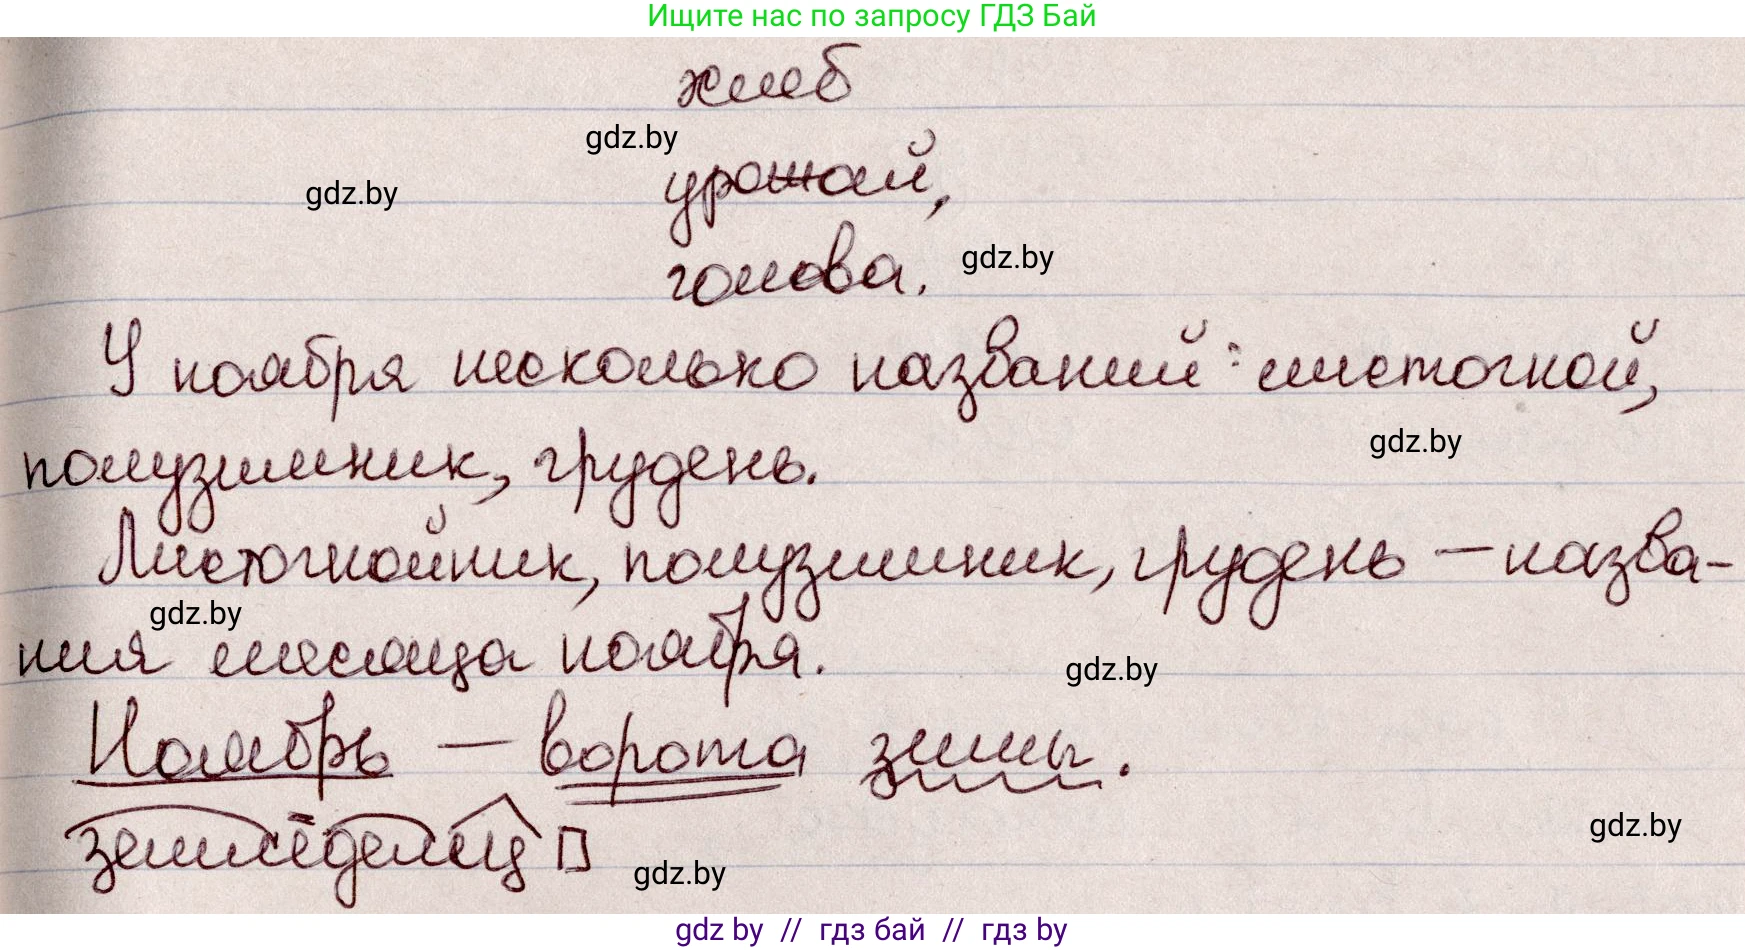 Ищите нас по запросу ГДЗ Бай
хлеб
gdz.by
gdz.by
урожай,
голова.
gdz.by
У ноября несколько названий: листогной,
gdz.by
полузимник, грудень.
Листогнойник, полузимник, грудень – назва-
gdz.by
ния месяца ноября.
gdz.by
Ноябрь – ворота зимы.
gdz.by
земледелец
gdz.by
gdz by // гдз бай // gdz by